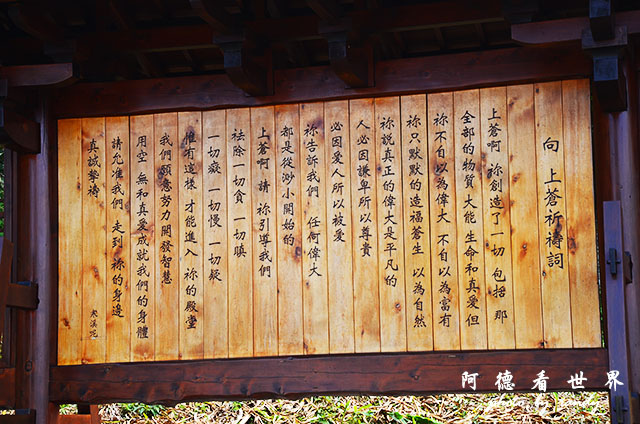 向 上蒼祈禱詞
上蒼啊 祢創造了一切 包括 那
全部的物質 大能 生命和真愛 但
祢不自以為偉大 不自以為富有
祢只默默的造福蒼生 以為自然
祢說真正的偉大是平凡的
人必因謙卑所以尊貴
必因愛人所以被愛
祢告訴我們 任何偉大
都是從渺小開始的
上蒼啊 請 祢引導我們
祛除一切貪 一切瞋
一切癡 一切慢 一切疑
惟有這樣 才能進入 祢的殿堂
我們願意努力 開發智慧
用空 無和真愛成就我們的身體
請允准我們 走到 祢的身邊
真誠摯禱
阿德看世界